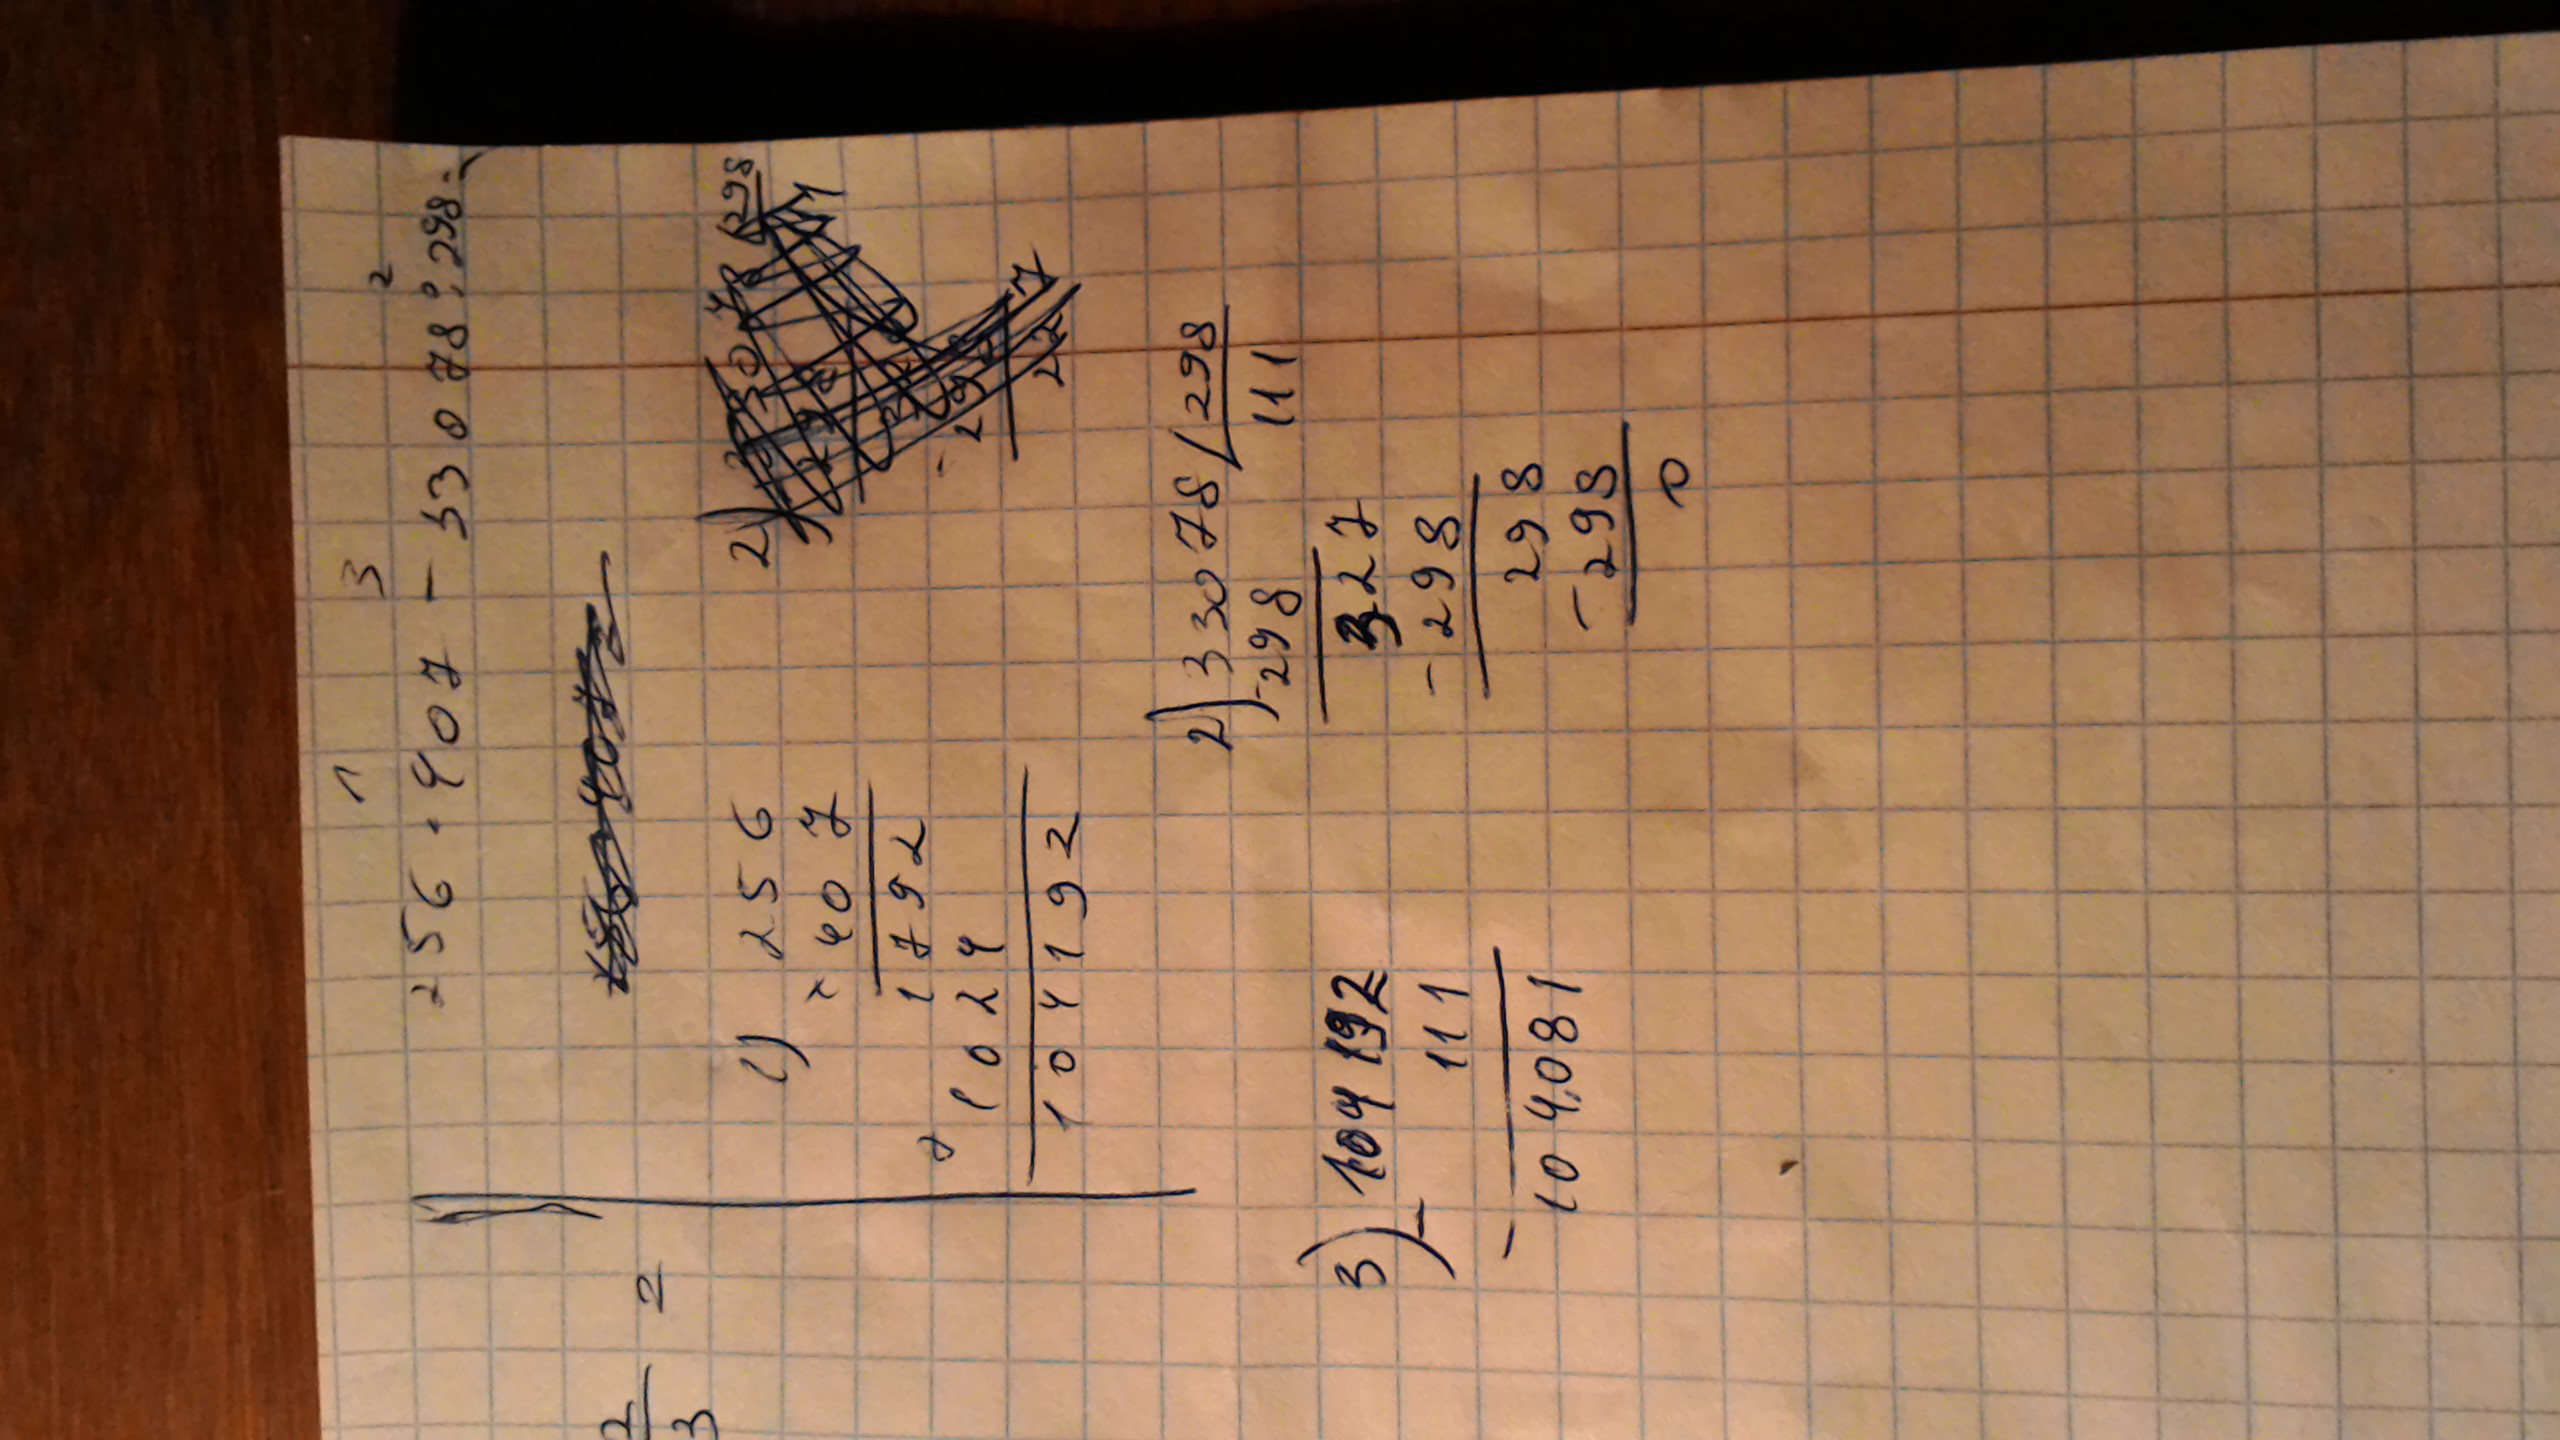 1 3 2
256 · 407 - 33078 : 298
1) 256
× 407
1792
1024
104192
2) 33078 298
-298 111
327
- 298
298
- 298
0
3) 104192
- 111
104081
2
2
3